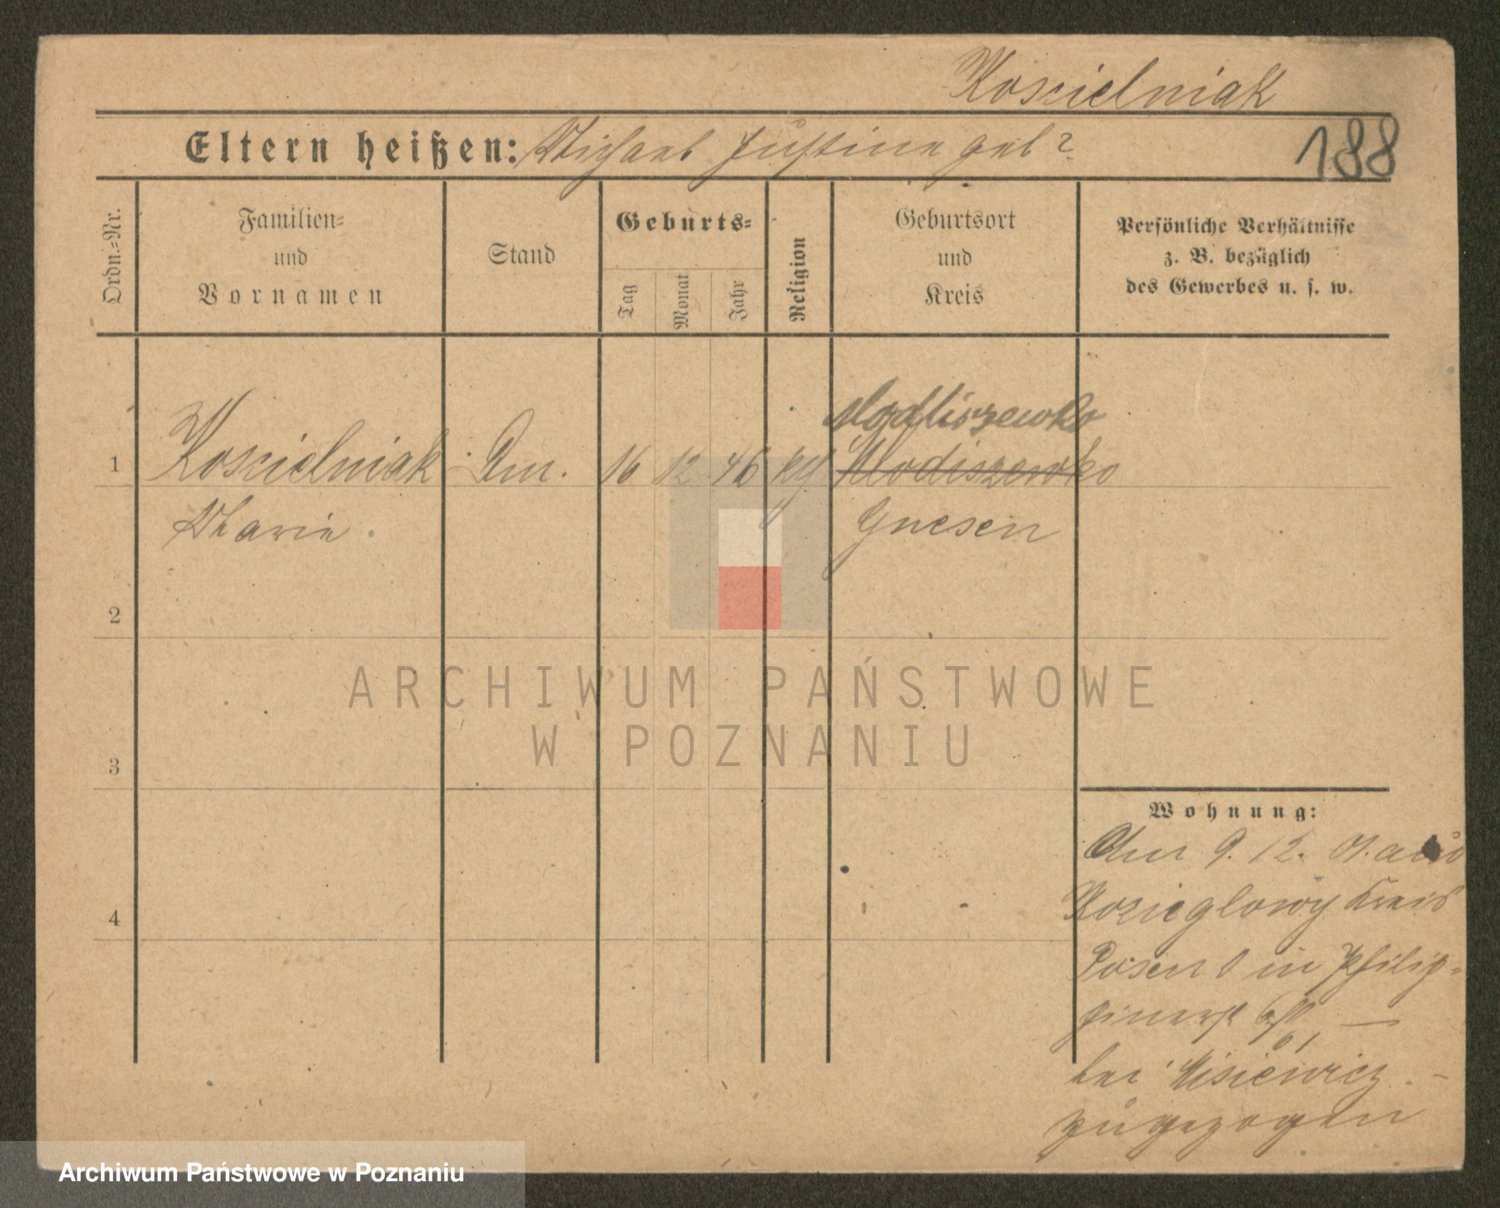 Koscielniak
Eltern heißen: Michael Justine geb?
188
Ordn.-Nr.
Familien-
und
Vornamen
Stand
Geburts-
Tag
Monat
Jahr
Religion
Geburtsort
und
Kreis
Persönliche Verhältnisse
z. B. bezüglich
des Gewerbes u. s. w.
Modliszewko
1 Koscielniak 16 12 46 Modiszewko
Marie. Gnesen
2
3
4
ARCHIWUM PAŃSTWOWE
W POZNANIU
Wohnung:
Am 9. 12. 01. aus
Kozieglowy Kreis
Posen in Philip-
bei Misiewicz
zugezogen
Archiwum Państwowe w Poznaniu